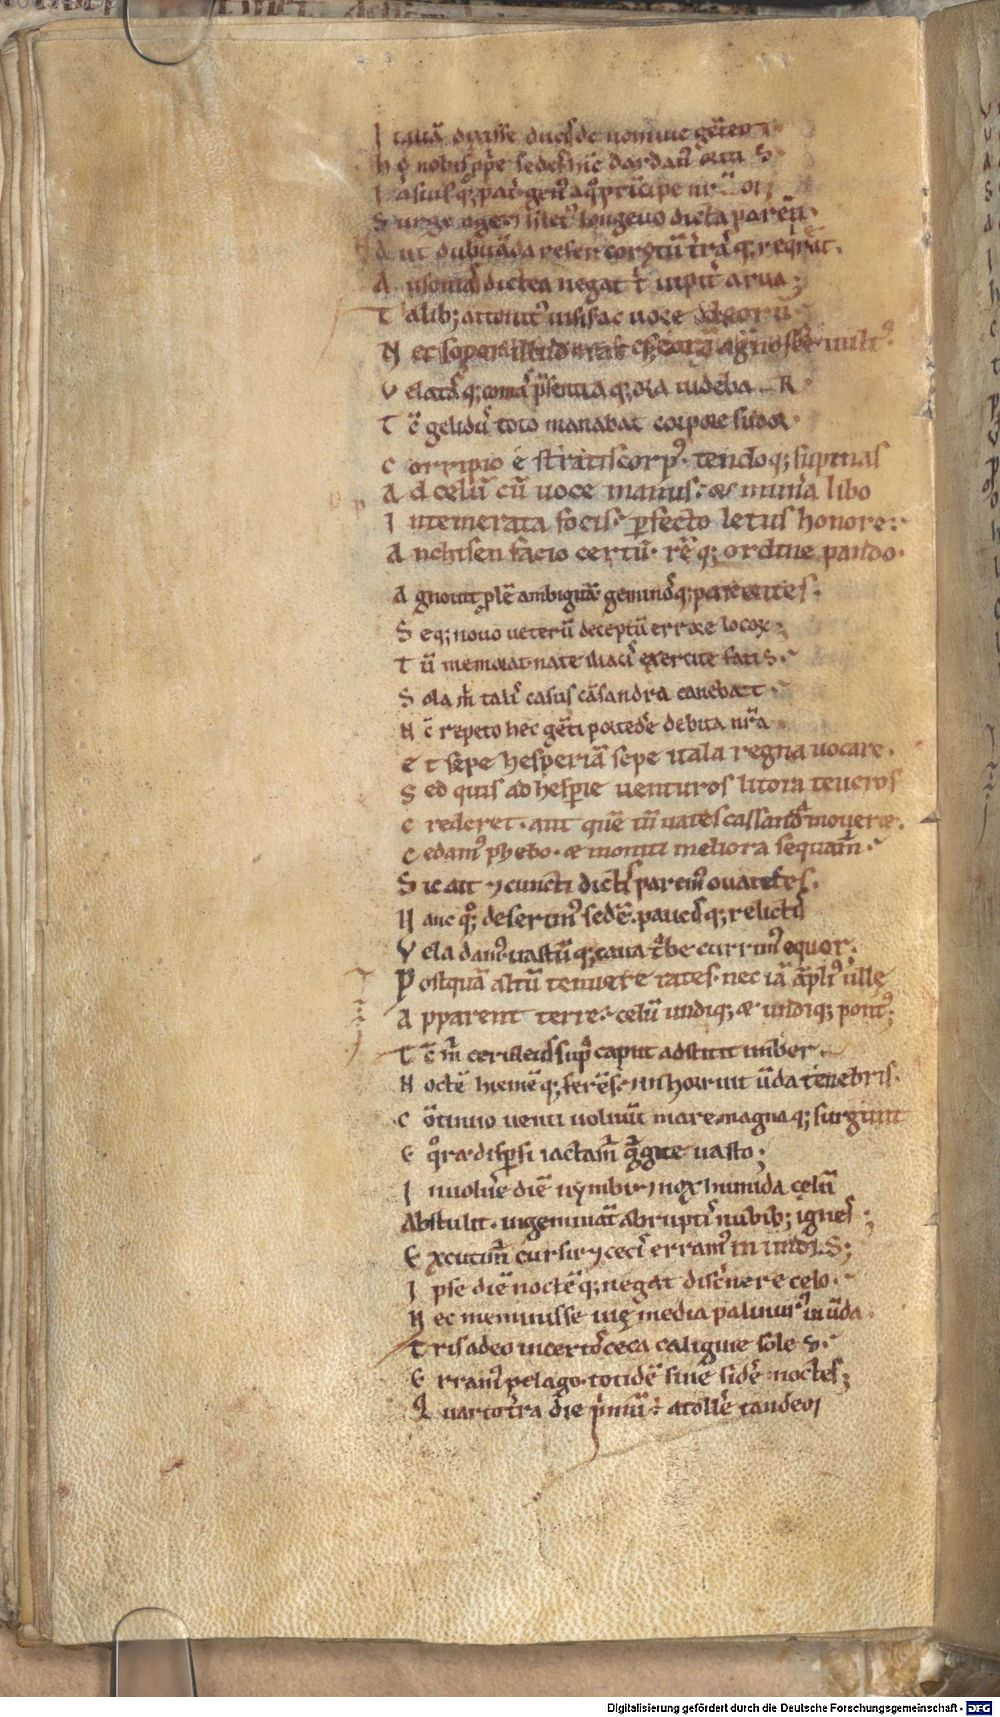 I taliā dixisse duces de nomine gētem
h ę nobis p̱prie sedes hic dardan᾽ ortᷤ
I asiusq; pat᷑ gen᾽ a q̊ principe nr̄m
S urge age ⁊ h̄ let᾽ longeuo dicta parēti
H aut dubitāda refer corytū t̄rasq; req̇rat.
A usonias dictea negat t̄ iupit᷑ arua;
T alib; attonit᾽ uisis ac uoce deorū
N ec sopor illud erat cor̄a agnoscere uult᾽
V elatasq; comas p̄sentiaq; ora uidebaR
T ē gelidus toto manabat corpore sudor
C orripio e stratis corp᾽ tendoq; supinas
A d celū cū uoce manus. & munera libo
I ntemerata focis. ꝑfecto letus honore.
A nchisen facio certū. rēq; ordine pando.
A gnouit ꝓlē ambiguā geminosq; parentes.
S eq; nouo ueterū deceptū errore locoꝝ
T ū memorat. nate iliacis exercite fatis.
S ola m̄ talis casus cāsandra canebat
N ē repeto hec gēti portēdere debita nr̄a
E t sepe hesperiā sepe itala regna uocare.
S ed quis ad hesperie uenturos litora teucros
C rederet. aut quē tū uates cassandra moueret.
C edam᾽ phebo. & moniti meliora sequam̄.
S ic ait ⁊ cuncti dictis parem᾽ ouantes.
H anc q̊; deserim᾽ sedē. paucisq; relictis
V ela dam᾽ uastūq; caua t̄be currim᾽ equor.
P ostquā altū tenuere rates. nec iā āpli᾽ ulle
A pparent terre. celū undiq; & undiq; pont᾽;
T ē m̄ ceruleus sup̱ caput adstitit imber.
N octē hiemēq; ferēs. ⁊ inhorruit ūda tenebris.
C ōtinuo uenti uoluūt mare. magnaq; surgunt
E q̊ra. disꝑsi iactam̄ gurgite uasto;
I nuoluere diē nymbi ⁊ nox humida celū
Abstulit. ingemināt abruptis nubib; ignes;
E xcutim̄ cursu ⁊ cecis erram᾽ in undis;
I pse diē noctēq; negat discernere celo.
N ec meminisse uię media palinur᾽ in ūda.
T ris adeo incertos ceca caligine soles.
E rram᾽ pelago. totidē sine sidere noctes;
Q uarto t̄ra die p̄mū s̄ atollere tandem
Digitalisierung gefördert durch die Deutsche Forschungsgemeinschaft - DFG